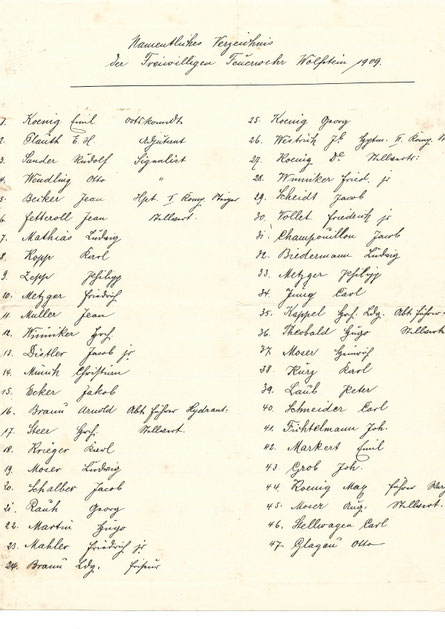 Namentliches Verzeichnis
der Freiwilligen Feuerwehr Wolfstein 1909.
1. Koenig Emil Ortskomdt.
2. Plauth E. H. Adjutant
3. Sander Rudolf Signalist
4. Wendling Otto "
5. Becker Jean Hpt. I Komp.
6. Fetteroll Jean Stellvert.
7. Mathias Ludwig
8. Kopp Karl
9. Zepp Philipp
10. Metzger Friedrich
11. Müller Jean
12. Winniker
13. Distler Jacob jr
14. Münch Christian
15. Ecker Jakob
16. Braun Arnold Abt. Führer Hydrant.
17. Steer Stellvert.
18. Krieger Karl
19. Moser Ludwig
20. Schalber Jacob
21. Rauh Georg
22. Martin Hugo
23. Mahler Friedrich jr
24. Braun Ldg.
25. Koenig Georg
26. II Komp.
27. Koenig Stellvert:
28. Winniker Fried. jr
29. Scheidt Jacob
30. Vollet Friedrich jr
31. Champouillon Jacob
32. Biedermann Ludwig
33. Metzger Philipp
34. Jung Carl
35. Kappel Ldg. Abt. Führer
36. Theobald Hugo Stellvert.
37. Moser Heinrich
38. Kurz Karl
39. Laub Peter
40. Schneider Carl
41. Joh.
42. Markert Emil
43. Grob Joh.
44. Koenig Max Führer
45. Moser Aug. Stellvert.
46. Stellwagen Carl
47. Glagau Otto